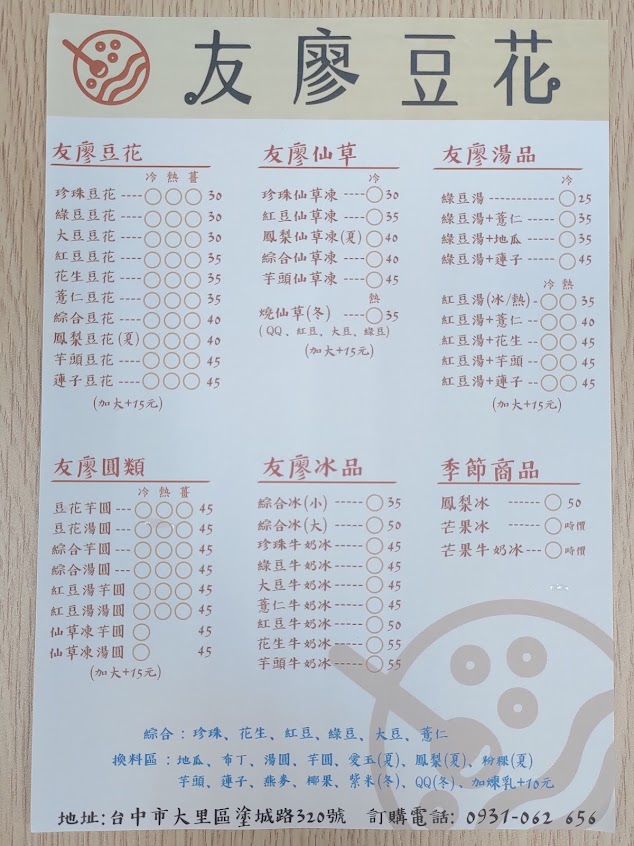 友廖豆花
友廖豆花
冷 熱 薑
珍珠豆花 ----○○○ 30
綠豆豆花 ----○○○ 30
大豆豆花 ----○○○ 30
紅豆豆花 ----○○○ 35
花生豆花 ----○○○ 35
薏仁豆花 ----○○○ 35
綜合豆花 ----○○○ 40
鳳梨豆花(夏) ○○○ 40
芋頭豆花 ----○○○ 45
蓮子豆花 ----○○○ 45
(加大+15元)
友廖仙草
冷
珍珠仙草凍 ----○ 30
紅豆仙草凍 ----○ 35
鳳梨仙草凍(夏) ○ 40
綜合仙草凍 ----○ 40
芋頭仙草凍 ----○ 45
熱
燒仙草(冬) -----○ 35
(QQ、紅豆、大豆、綠豆)
(加大+15元)
友廖湯品
冷
綠豆湯 ------------○ 25
綠豆湯+薏仁 -----○ 35
綠豆湯+地瓜 -----○ 35
綠豆湯+蓮子 -----○ 45
冷 熱
紅豆湯(冰/熱) -○○ 35
紅豆湯+薏仁 --○○ 40
紅豆湯+花生 --○○ 45
紅豆湯+芋頭 --○○ 45
紅豆湯+蓮子 --○○ 45
(加大+15元)
友廖圓類
冷 熱 薑
豆花芋圓 ---○○○ 45
豆花湯圓 ---○○○ 45
綜合芋圓 ---○○○ 45
綜合湯圓 ---○○○ 45
紅豆湯芋圓 ○○○ 45
紅豆湯湯圓 ○○○ 45
仙草凍芋圓 ○ 45
仙草凍湯圓 ○ 45
(加大+15元)
友廖冰品
綜合冰(小) ------○ 35
綜合冰(大) ------○ 50
珍珠牛奶冰-----○ 45
綠豆牛奶冰-----○ 45
大豆牛奶冰-----○ 45
薏仁牛奶冰-----○ 45
紅豆牛奶冰-----○ 50
花生牛奶冰-----○ 55
芋頭牛奶冰-----○ 55
季節商品
鳳梨冰 ------○ 50
芒果冰 ------○時價
芒果牛奶冰---○時價
綜合：珍珠、花生、紅豆、綠豆、大豆、薏仁
換料區：地瓜、布丁、湯圓、芋圓、愛玉(夏)、鳳梨(夏)、粉粿(夏)
芋頭、蓮子、燕麥、椰果、紫米(冬)、QQ(冬)、加煉乳+10元
地址:台中市大里區塗城路320號 訂購電話: 0931-062 656